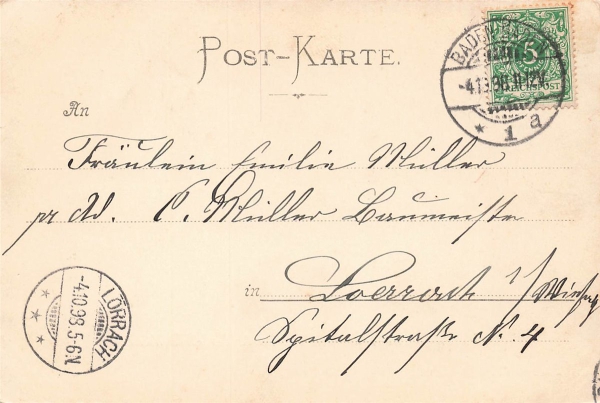 POST-KARTE.
BADEN
5
REICHSPOST
-4.10.98.11-12V.
* 1 a
An
Fräulein Emilie Müller
pr Ad. C. Müller Baumeister
in Loerrach i/Wiesenth
Spitalstraße N. 4
LÖRRACH
-4.10.98.5-6N.